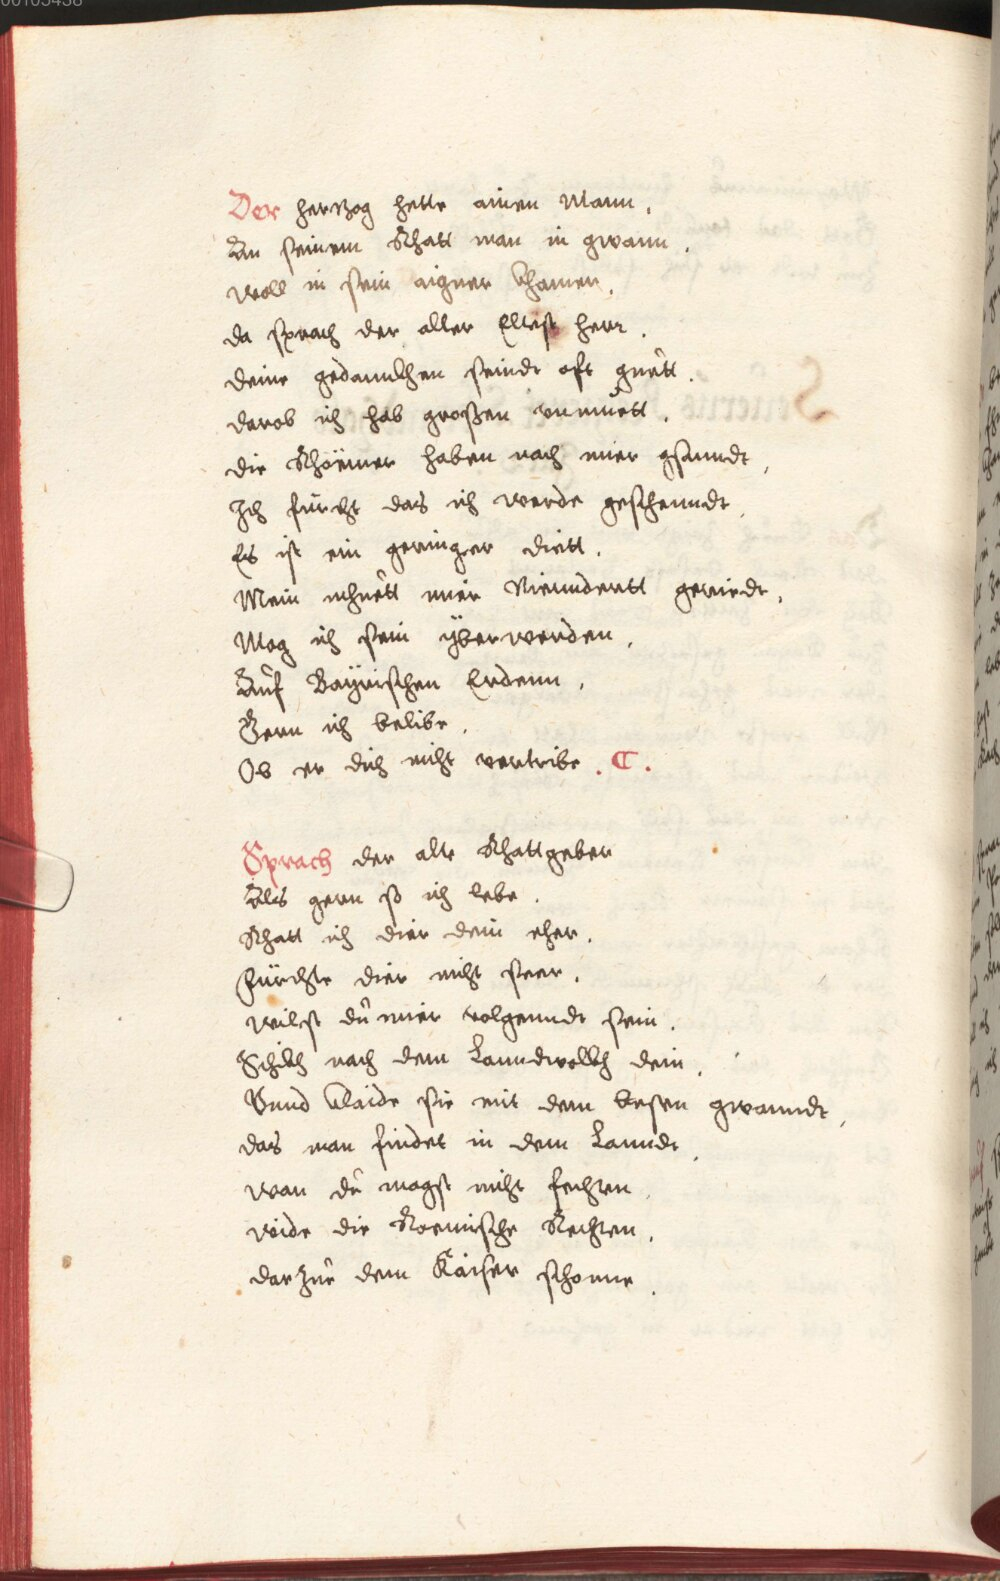 Der hertzog hette ainen Mann,
An seinem Rhatt man in gwann,
woll in sein aigner Chamer,
da sprach der aller Eltest herr,
deine gedannckhen seindt oft guett,
darob ich hab großen vnmuett,
die Rhoemer haben nach mier gsanndt,
Ich fürcht das ich werde geschenndt,
Es ist ein geringer diett,
Mein muett mier Niemndertt
Mog ich sein yberwerden,
Auf Bayrischen Erdenn,
Gern ich belibe,
Ob er dich nicht vertribe. C.
Sprach der alte Rhattgeber
Als gern so ich lebe,
Rhatt ich dier dein eher,
fürchte dier nicht seer,
wilst dü mier volgenndt sein,
Schickh nach dem Lanndvollkh dein,
Vnnd Claide sie mit dem besen gwanndt,
das man findet in dem Lanndt,
wan dü magst nicht fechten
wide die Roemische Rechten,
darzue dem Kaiser schonne,